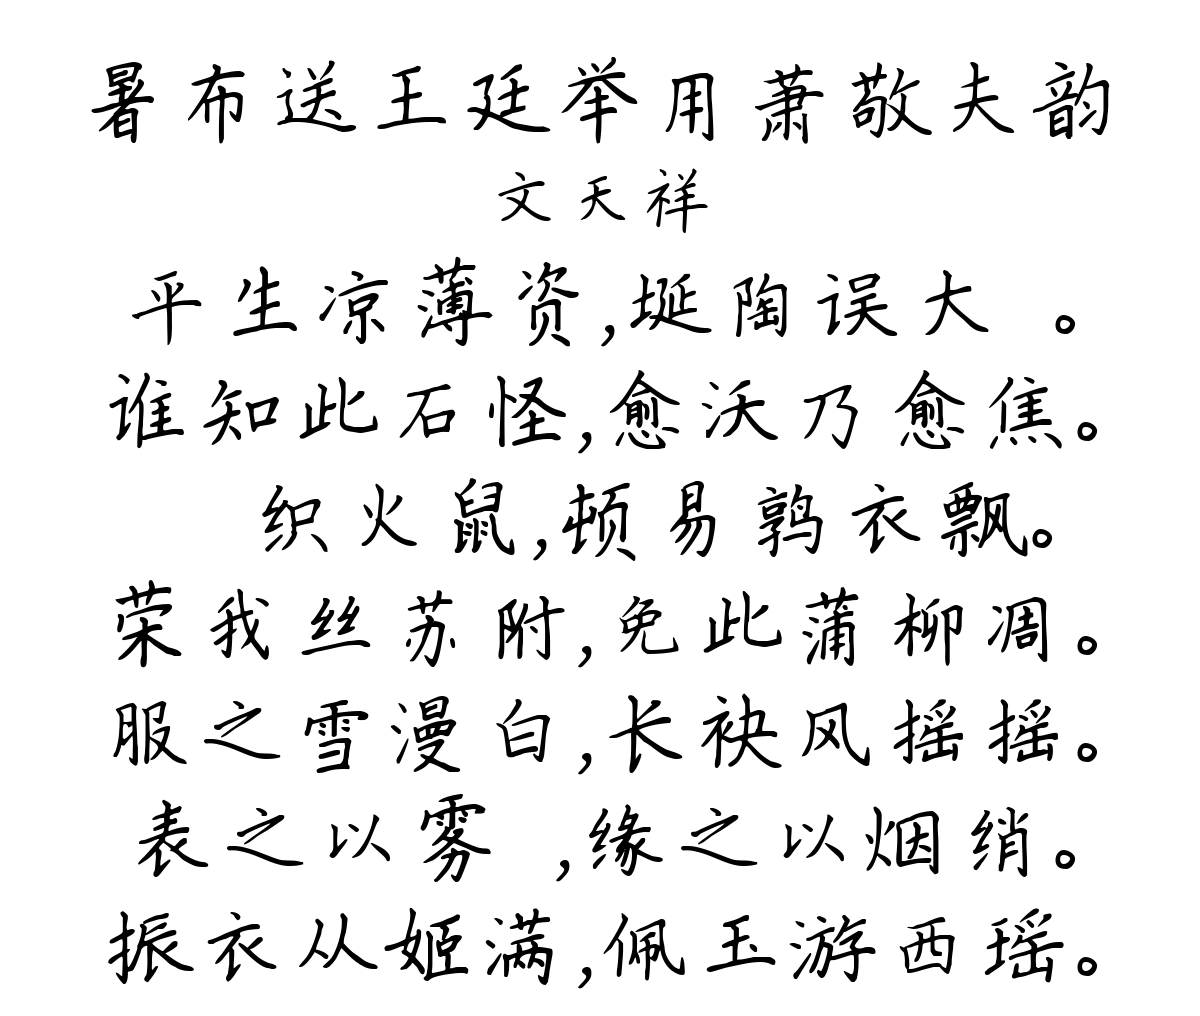 暑布送王廷举用萧敬夫韵
文天祥
平生凉薄资,埏陶误大 。
谁知此石怪,愈沃乃愈焦。
织火鼠,顿易鹑衣飘。
荣我丝苏附,免此蒲柳凋。
服之雪漫白,长袂风摇摇。
表之以雾 ,缘之以烟绡。
振衣从姬满,佩玉游西瑶。